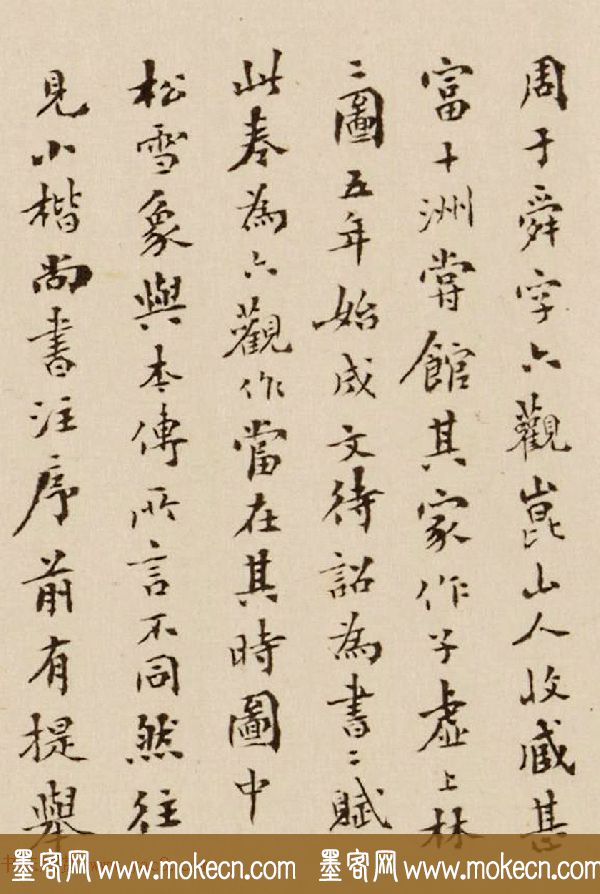 周于舜字六觀崑山人收藏甚
富十洲嘗館其家作子虛上林
二圖五年始成文待詔為書二賦
此奏為六觀作當在其時圖中
松雪象與本傳所言不同然往
見小楷尚書注序前有提舉
墨客网 www.mokecn.com 墨客网 www.mokecn.com